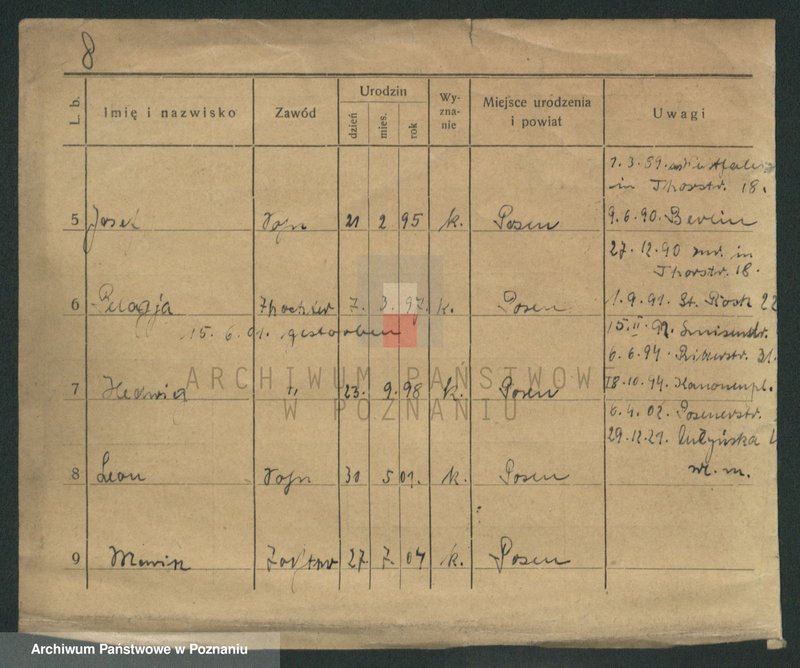 8
L. b.
Imię i nazwisko
Zawód
Urodzin
dzień
mies.
rok
Wy-
zna-
nie
Miejsce urodzenia
i powiat
Uwagi
1.3.89.
in Thorstr. 18.
5 Josef Sohn 21 2 95 k. Posen
9.6.90. Berlin
27.12.90 zur. in
Thorstr. 18.
6 Pelagja Tochter 7. 3. 97. k. Posen
1.9.91. St. Rosk 22
15. 6. 01. gestorben
15.II.92.
6.6.94. Ritterstr. 31.
7 Hedwig " 23. 9. 98 k. Posen
18.10.94. Kanonenpl.
6.4.02. Posenerstr.
29.12.21.
8 Leon Sohn 30 5 01. k. Posen
w. m.
9 Tochter 27 7. 04 k. Posen
ARCHIWUM PAŃSTWOWE
W POZNANIU
Archiwum Państwowe w Poznaniu